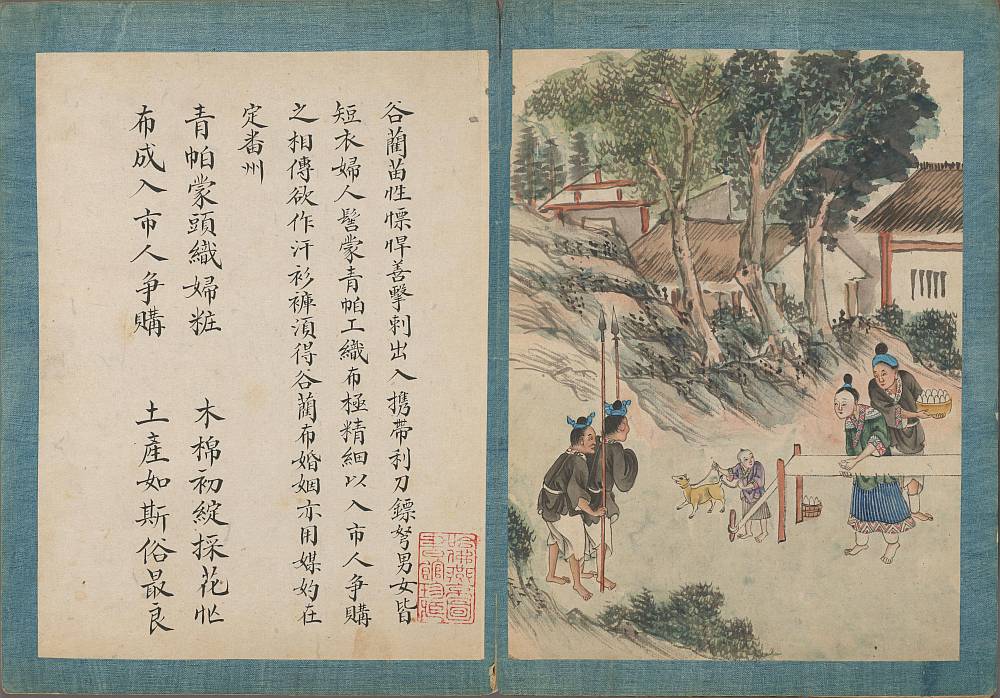 谷藺苗性慓悍善擊刺出入携帶利刀鏢弩男女皆
短衣婦人髻蒙青帕工織布極精細以入市人争購
之相傳欲作汗衫褲須得谷藺布婚姻亦用媒妁在
定番州
青帕蒙頭織婦粧 木棉初綻採花忙
布成入市人争購 土產如斯俗最良